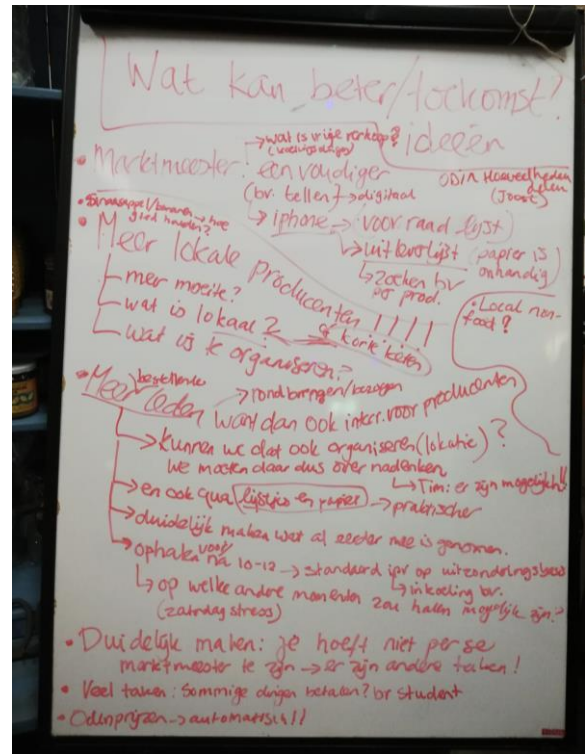 Wat kan beter/toekomst?
ideeën
→ wat is vrije verkoop?
• Marktmeester: eenvoudiger
(bv. tellen) → digitaal
ODIN Hoeveelheden
delen
(Joost)
↳ iphone → (voorraadlijst)
↳ uitleverlijst (papier is
onhandig)
↳ zoeken bv
per prod.
• Sinaasappel/bananen → hoe
goed houden?
• Meer lokale producenten !!!!
- meer moeite?
- wat is lokaal? of korte keten
- wat is te organiseren?
• Local non-
food?
• Meer bestellende leden
→ rondbrengen/bezorgen
want dan ook inter. voor producenten
→ kunnen we dat ook organiseren (lokatie)?
we moeten daar dus over nadenken
↳ Tim: er zijn mogelijkh!!
→ en ook qua lijstjes en papier → praktischer
→ duidelijk maken wat al eerder mee is genomen.
→ ophalen voor/na 10-12 → standaard ipv op uitzonderingsbasis
↳ inkoeling bv.
↳ op welke andere momenten zou halen mogelijk zijn?
(zaterdag stress)
• Duidelijk maken: je hoeft niet per se
marktmeester te zijn → er zijn andere taken!
• Veel taken: Sommige dingen betalen? bv student
• Odinprijzen → automatisch!!